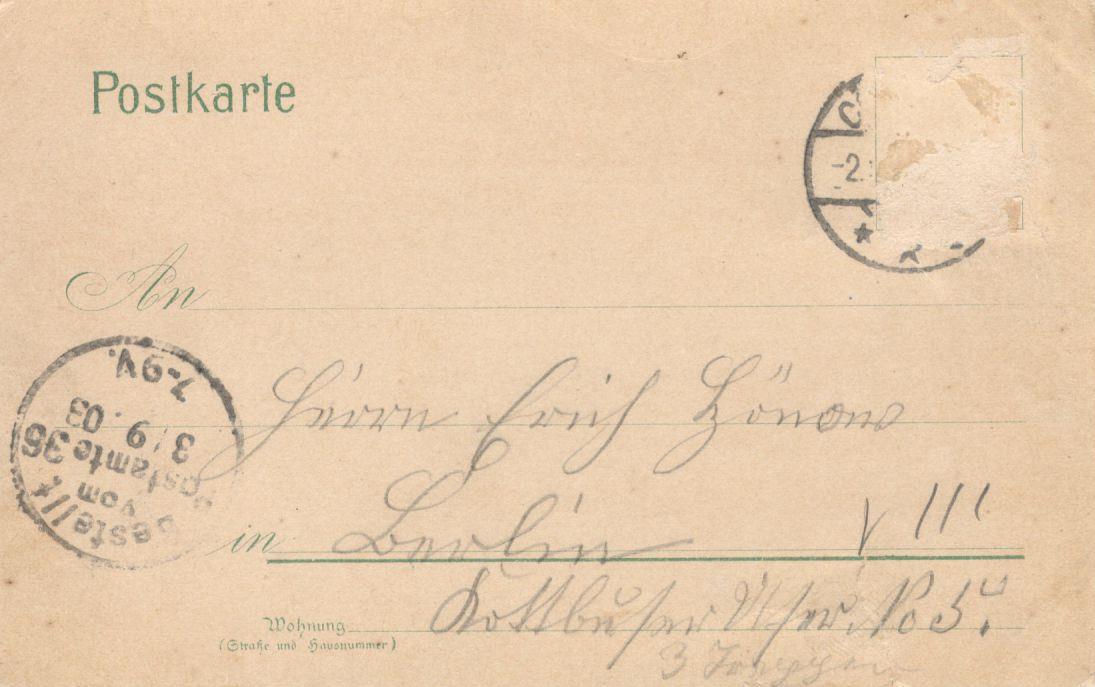 Postkarte
C
-2.
An
7-9V.
3/9.03
Postamte 36
vom
Bestellt
Herrn Erich Hönow
in Berlin
Kottbuser Ufer No 5
Wohnung
(Straße und Hausnummer)
3 Treppen